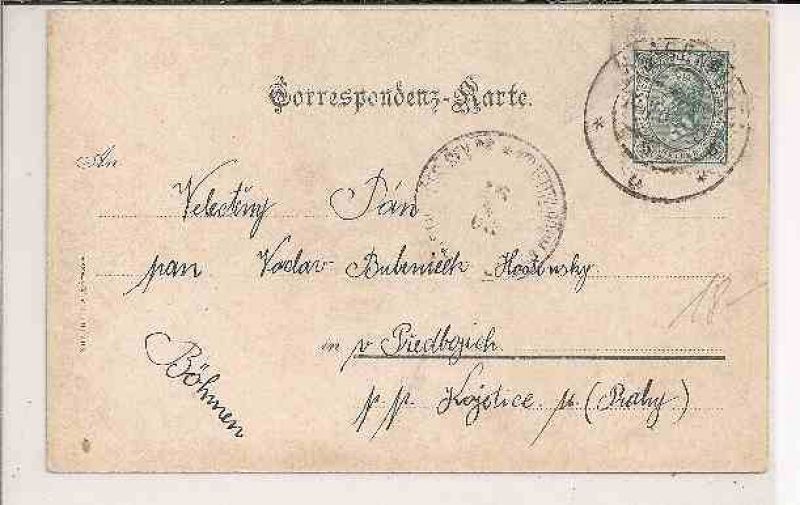 Correspondenz-Karte.
An
Velectěný Pán
pan Vaclav Bubeníček
in v Předbozich
p. p. Kojetice u (Prahy)
Böhmen
18-